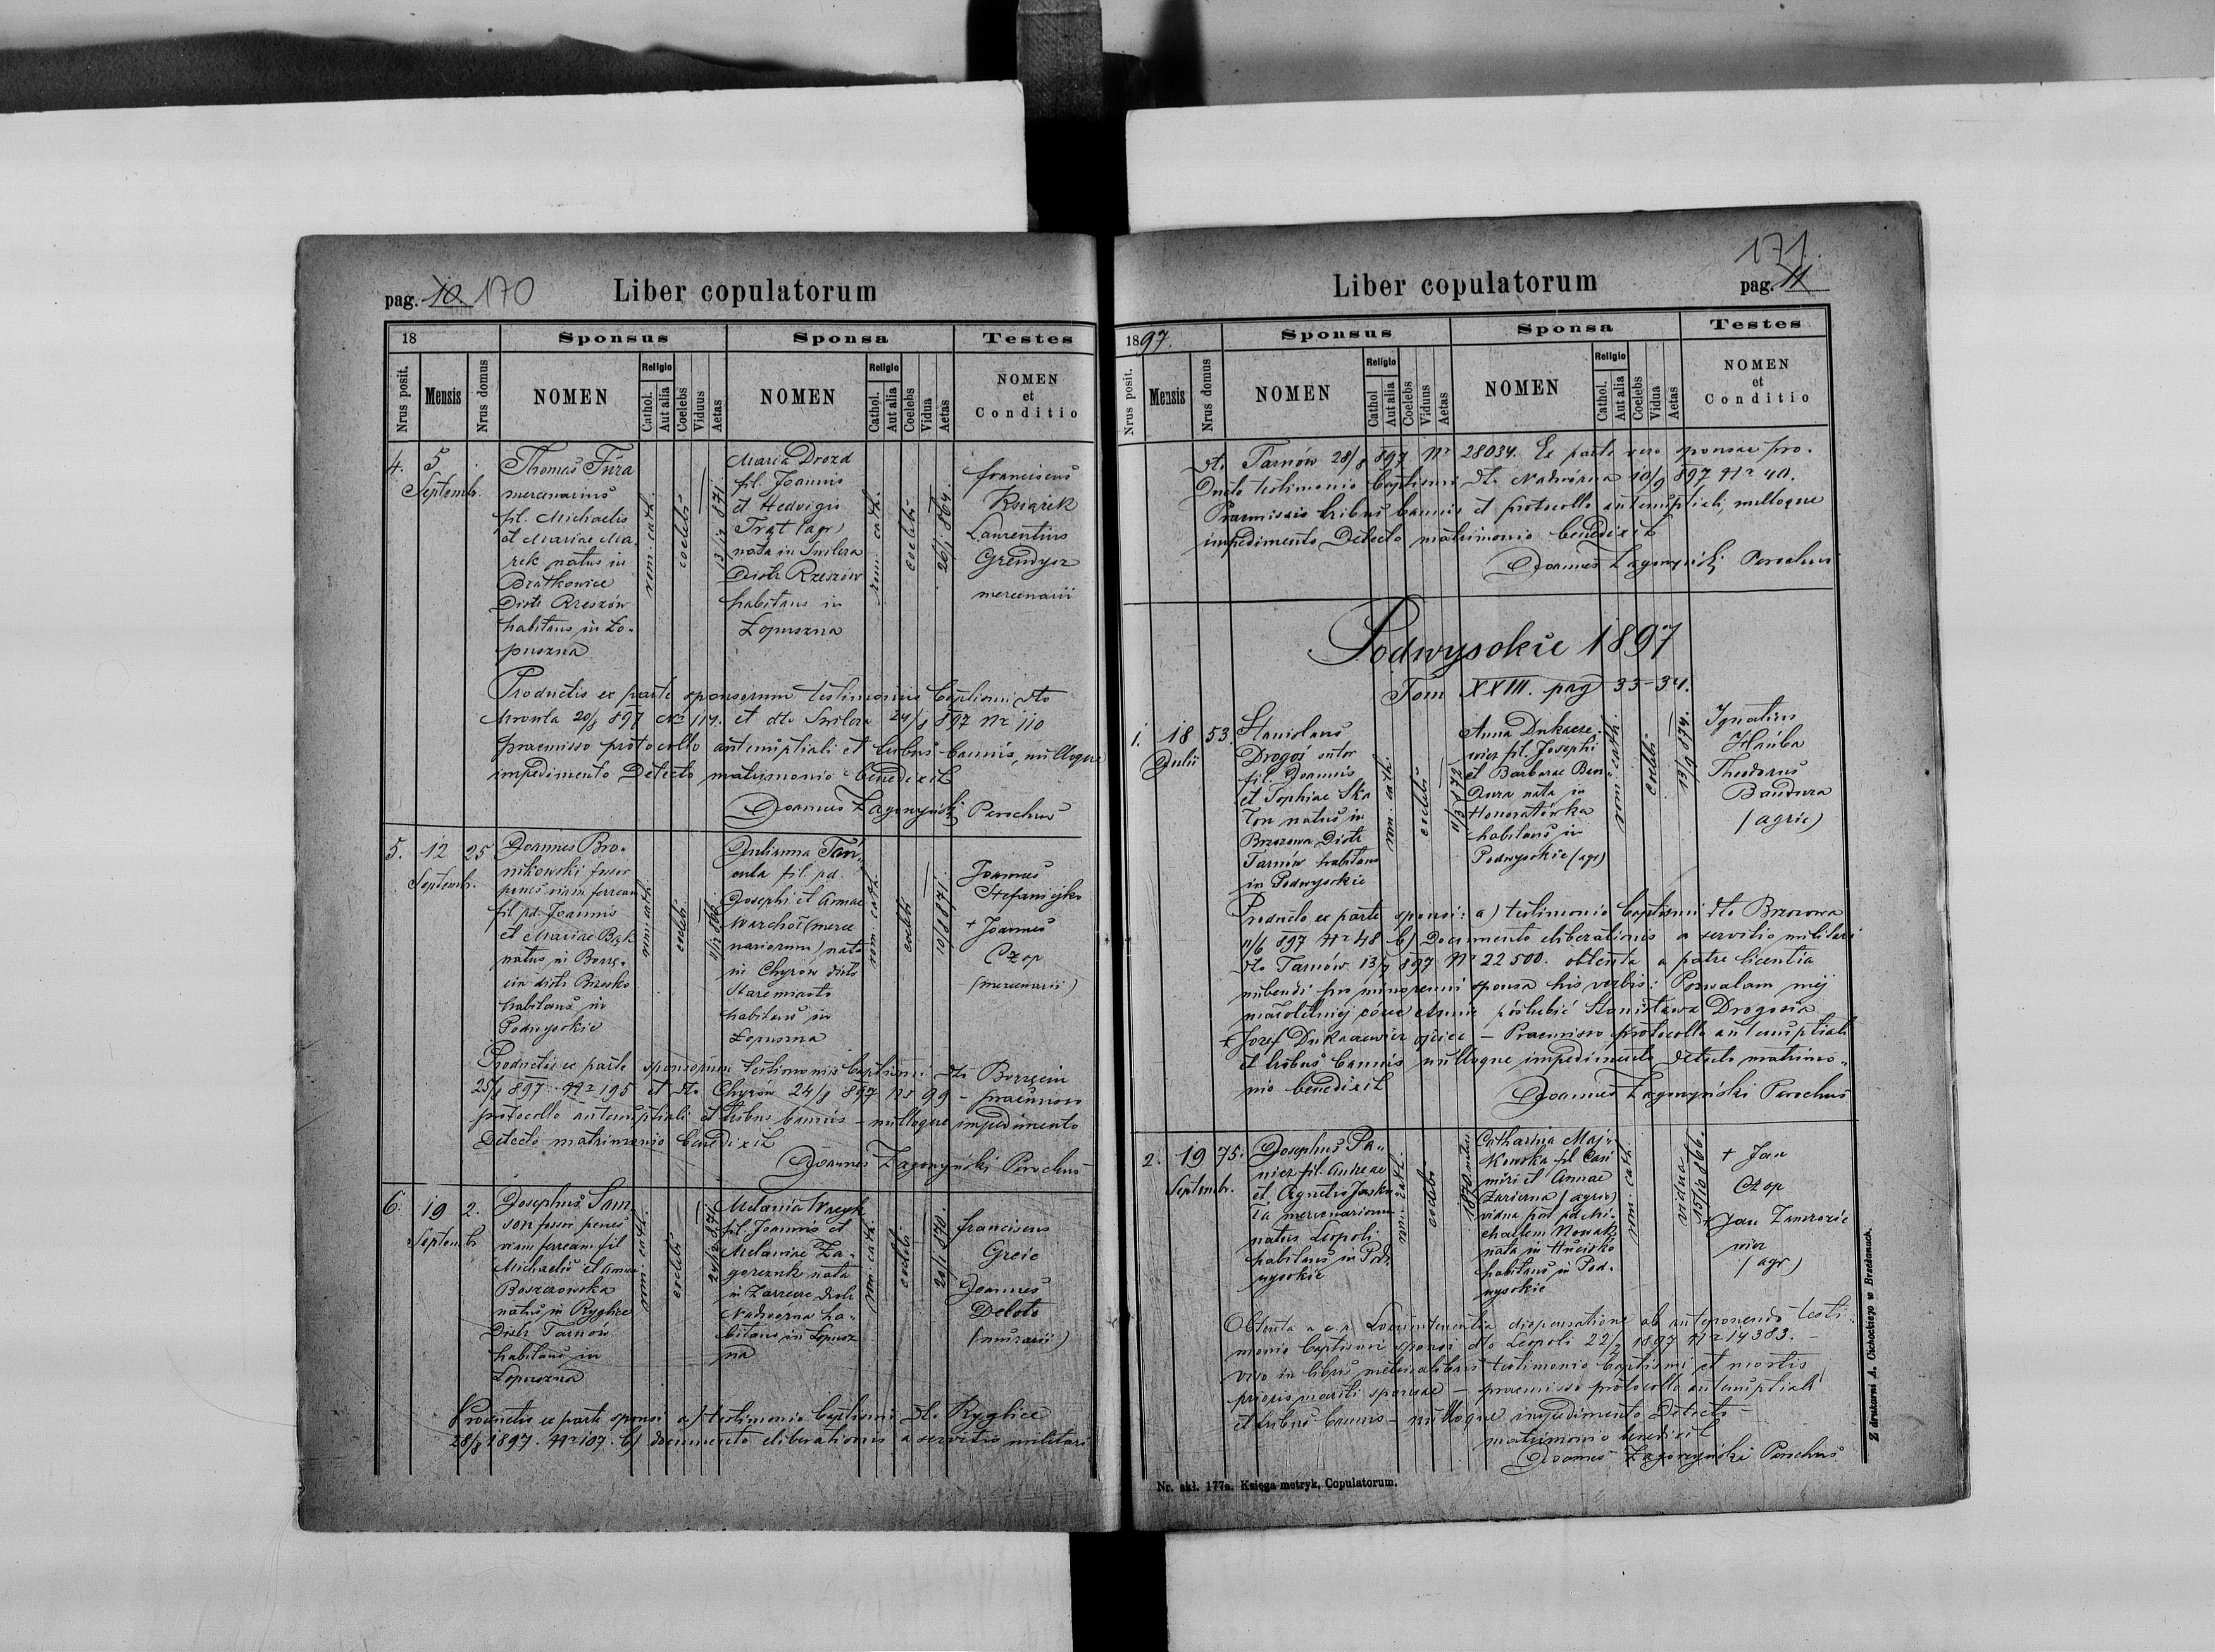 pag. 10 170
Liber copulatorum
18
Sponsus
Sponsa
Testes
Nrus posit.
Mensis
Nrus domus
NOMEN
Religio
Cathol.
Aut alia
Coelebs
Viduus
Aetas
NOMEN
Religio
Cathol.
Aut alia
Coelebs
Vidua
Aetas
NOMEN
et
Conditio
4.
5
Septemb.
Thomas Fura
mercenarius
fil. Michaelis
et Mariae Ma-
rek natus in
Bratkowice
Distr Rzeszów
habitans in Ło-
puszna
rom. cath.
coelebs
13/12 871.
Maria Drozd
fil. Joannis
et Hedvigis
Trąt (agr)
nata in Swilcza
Distr Rzeszów
habitans in
Łopuszna
rom. cath.
coelebs
26/1 864.
Franciscus
Książek
Laurentius
Grendysz
mercenarii
Productis ex parte sponsorum testimoniis baptismi dto
Mrowla 20/8 897 Nr 114. et dto Swilcza 24/8 897 Nr 110
praemisso protocollo antenuptiali et tribus bannis, nulloque
impedimento detecto matrimonio benedixit
Joannes Zagorzyński Parochus
5.
12
Septemb.
25
Joannes Bro-
nikowski fusor
penes viam ferream
fil pd. Joannis
et Mariae Bąk
natus in Borzę-
cin distr Brzesko
habitans in
Podwysokie
rom. cath.
coelebs
11/12 866
Julianna Tań-
cula fil. pd.
Josephi et Annae
Warchoł (merce
nariorum) nata
in Chyrów distr
Staremiasto
habitans in
Łopuszna
rom. cath.
coelebs
10/8 871.
Joannes
Stefaniszko
+ Joannes
Czop
(mercenarii)
Productis ex parte sponsorum testimoniis baptismi dto Borzęcin
25/8 897 Nr 195 et dto Chyrów 24/8 897 Nr 99 – praemisso
protocollo antenuptiali et tribus bannis – nulloque impedimento
detecto matrimonio benedixit
Joannes Zagorzyński Parochus
6.
19
Septemb
2.
Josephus Sam-
son fusor penes
viam ferream fil
Michaelis et Annae
Boszczowska
natus in Ryglice
Distr Tarnów
habitans in
Łopuszna
rom. cath.
coelebs
24/12 871.
Melania
fil. Joannis et
Melaniae Za-
gorcznk nata
in Zarzecze distr
Nadwórna ha-
bitans in Łopusz
na
rom. cath.
coelebs
20/1 870.
Franciscus
Greic
Joannes
Deloto
(murarii)
Productis ex parte sponsi a) testimonio baptismi dto Ryglice
28/8 1897. Nr 107. b) documento eliberationis a servitio militari
171.
Liber copulatorum
pag. 11
1897.
Sponsus
Sponsa
Testes
Nrus posit.
Mensis
Nrus domus
NOMEN
Religio
Cathol
Aut alia
Coelebs
Viduus
Aetas
NOMEN
Religio
Cathol.
Aut alia
Coelebs
Vidua
Aetas
NOMEN
et
Conditio
dto Tarnów 28/8 897 Nr 28034. Ex parte vero sponsae pro-
ducto testimonio baptismi dto Nadwórna 10/9 897 Nr 40.
Praemissis tribus bannis et protocollo antenuptiali, nulloque
impedimento detecto matrimonio benedixit
Joannes Zagorzyński Parochus
Podwysokie 1897
Tom XXIII. pag 33-34.
1.
18
Julii
53.
Stanislaus
Drogoś sutor
fil. Joannis
et Sophiae Ska
łon natus in
Brzozowa Distr
Tarnów habitans
in Podwysokie
rom. cath.
coelebs
11/3 872
Anna Dukacze-
wicz fil. Josephi
et Barbarae Ban-
dura nata in
Honoratówka
habitans in
Podwysokie (agr)
rom. cath.
coelebs
13/9 874.
Ignatius
Hańba
Theodorus
Bandura
(agric)
Producto ex parte sponsi: a) testimonio baptismi dto Brzozowa
11/6 897 Nr 48 b) Documento eliberationis a servitio militari
dto Tarnów 13/7 897 Nr 22500. obtenta a patre licentia
nubendi pro minorenni sponsa his verbis: Pozwalam mej
małoletniej córce Annie poślubić Stanisława Drogosia
+ Józef Dukaczewicz ojciec – Praemisso protocollo antenuptiali
et tribus bannis nulloque impedimento detecto matrimo-
nio benedixit
Joannes Zagorzyński Parochus
2.
19
Septembr.
75.
Josephus Pa-
nicz fil. Andreae
et Agnetis Jasku
ła mercenariorum
natus Leopoli
habitans in Pod-
wysokie
rom. cath.
coelebs
1870 natus
Catharina Maj-
kowska fil Casi
miri et Annae
Zarierna (agric)
vidua post pd Mi-
chaelem Nowak
nata in Huciśko
habitans in Pod-
wysokie
rom. cath.
vidua
15/10 866.
+ Jan
Czop
+ Jan Zawrozie
wicz
(agr)
Obtenta a c.r. Locumtenentia dispensatione ab anteponendo testi-
monio baptismi sponsi dto Leopoli 22/2 1897 Nr 14383. –
viso in libris metricalibus testimonio baptismi et mortis
prioris mariti sponsae – praemisso protocollo antenuptiali
et tribus bannis – nulloque impedimento detecto –
matrimonio benedixit
Joannes Zagorzyński Parochus
Nr. skł. 177a. Księga metryk, Copulatorum.
Z drukarni A. Cichockiego w Brzeżanach.